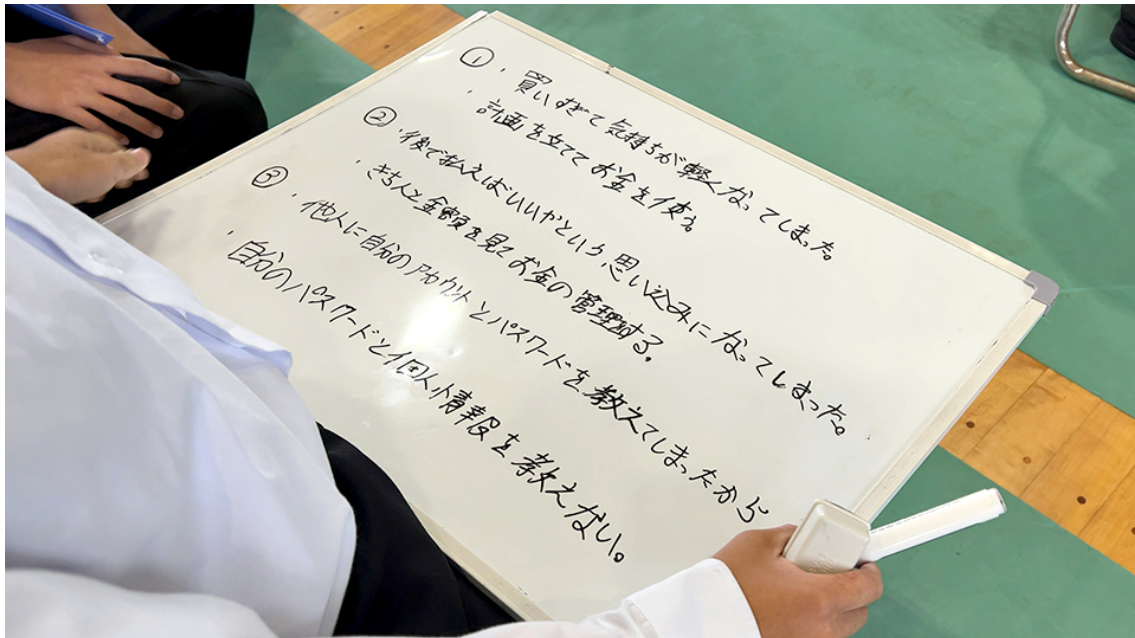 ① ・買いすぎて気持ちが軽くなってしまった。
・計画を立ててお金を使う。
② ・後で払えばいいやという、思い込みになってしまった。
・きちんと金額を見てお金の管理する。
③ ・他人に自分のアカウントとパスワードを教えてしまったから
・自分のパスワードと個人情報を教えない。